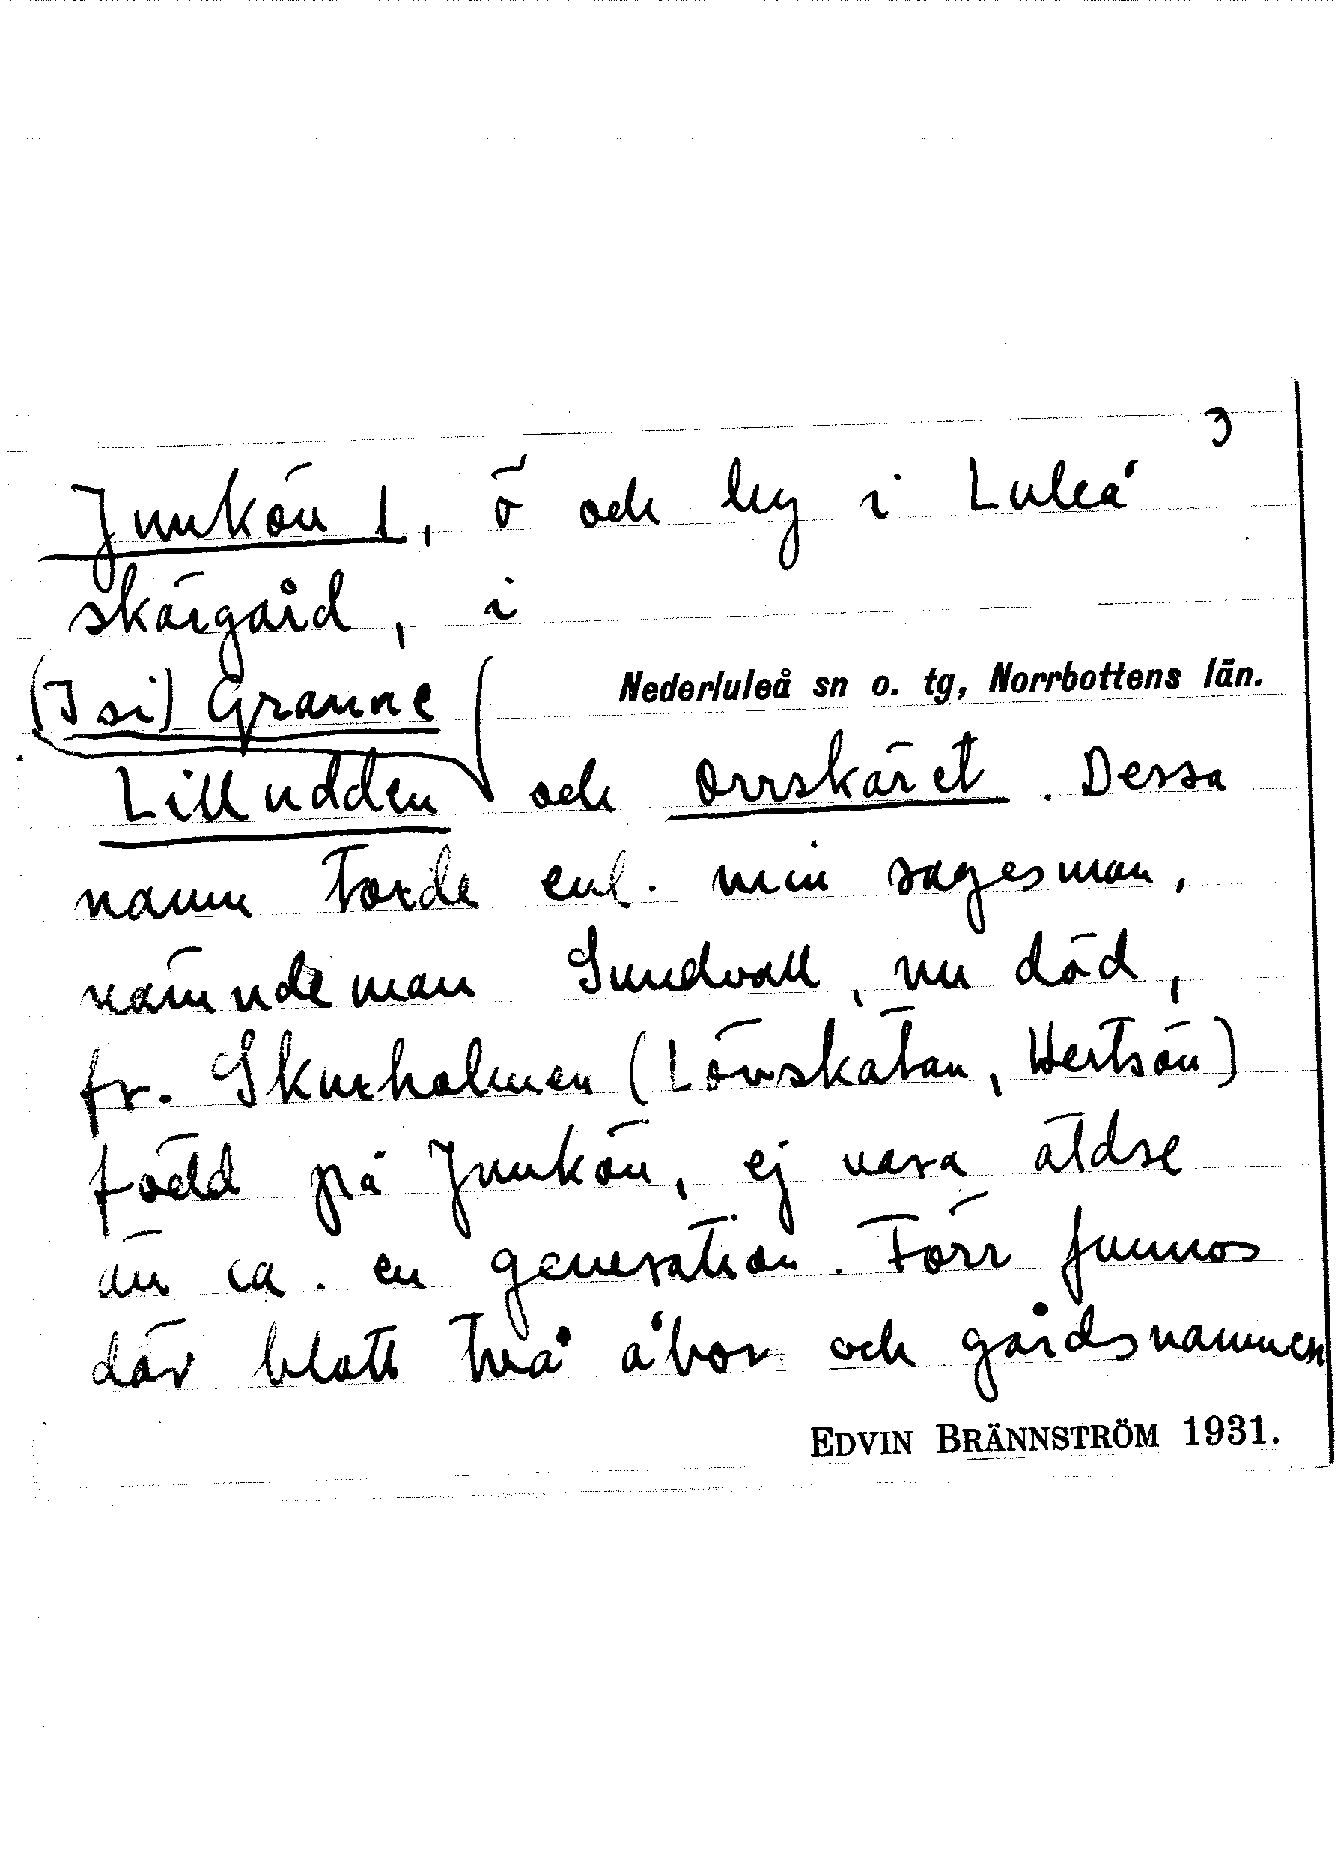 3
Junkön 1, ö och by i Luleå
skärgård, i
Nederluleå sn o. tg, Norrbottens län.
(Isi) Granne
Lilludden och Orrskäret. Dessa
namn torde enl. min sagesman,
nämndeman Sundvall, nu död,
fr. Skurholmen (Lövskatan, Hertsön)
född på Junkön, ej vara äldre
än ca. en generation. Förr funnos
där blott två åbor och gårdsnamnen
EDVIN BRÄNNSTRÖM 1931.